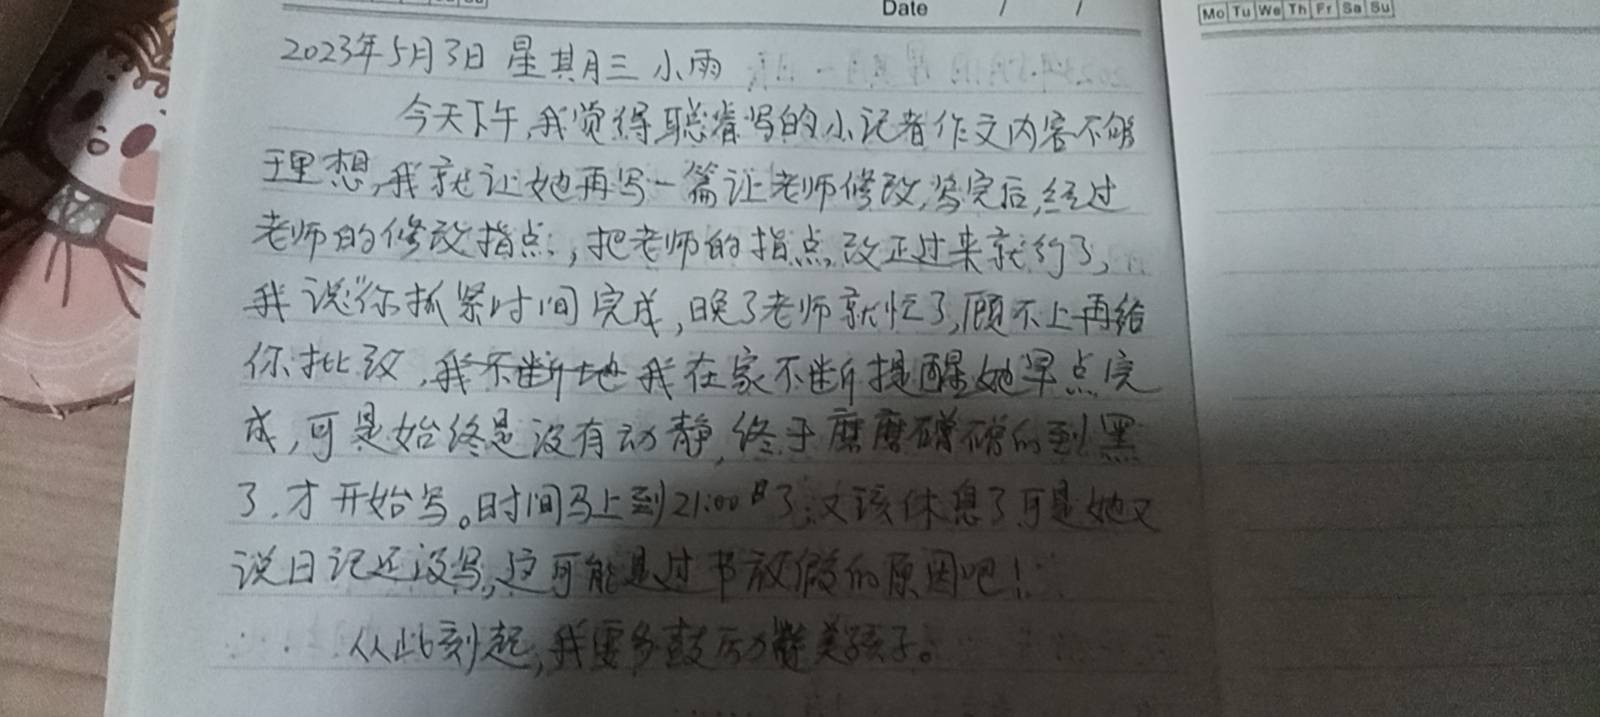 Date / /
Mo Tu We Th Fr Sa Su
2023年5月3日 星其月三 小雨
今天下午,我觉得聪睿写的小记者作文内容不够
理想,我就让她再写一篇让老师修改,写完后,经过
老师的修改指点,把老师的指点改正过来就行了,
我说"你抓紧时间完成,晚了老师就忙了,顾不上再给
你批改,我不断地我在家不断提醒她早点完
成,可是始终是没有动静,终于磨磨磳磳的到黑
了.才开始写。时间马上到21:00了,又该休息了可是她又
说日记还没写,这可能是过节放假的原因吧!
从此刻起,我要多鼓励赞美孩子。